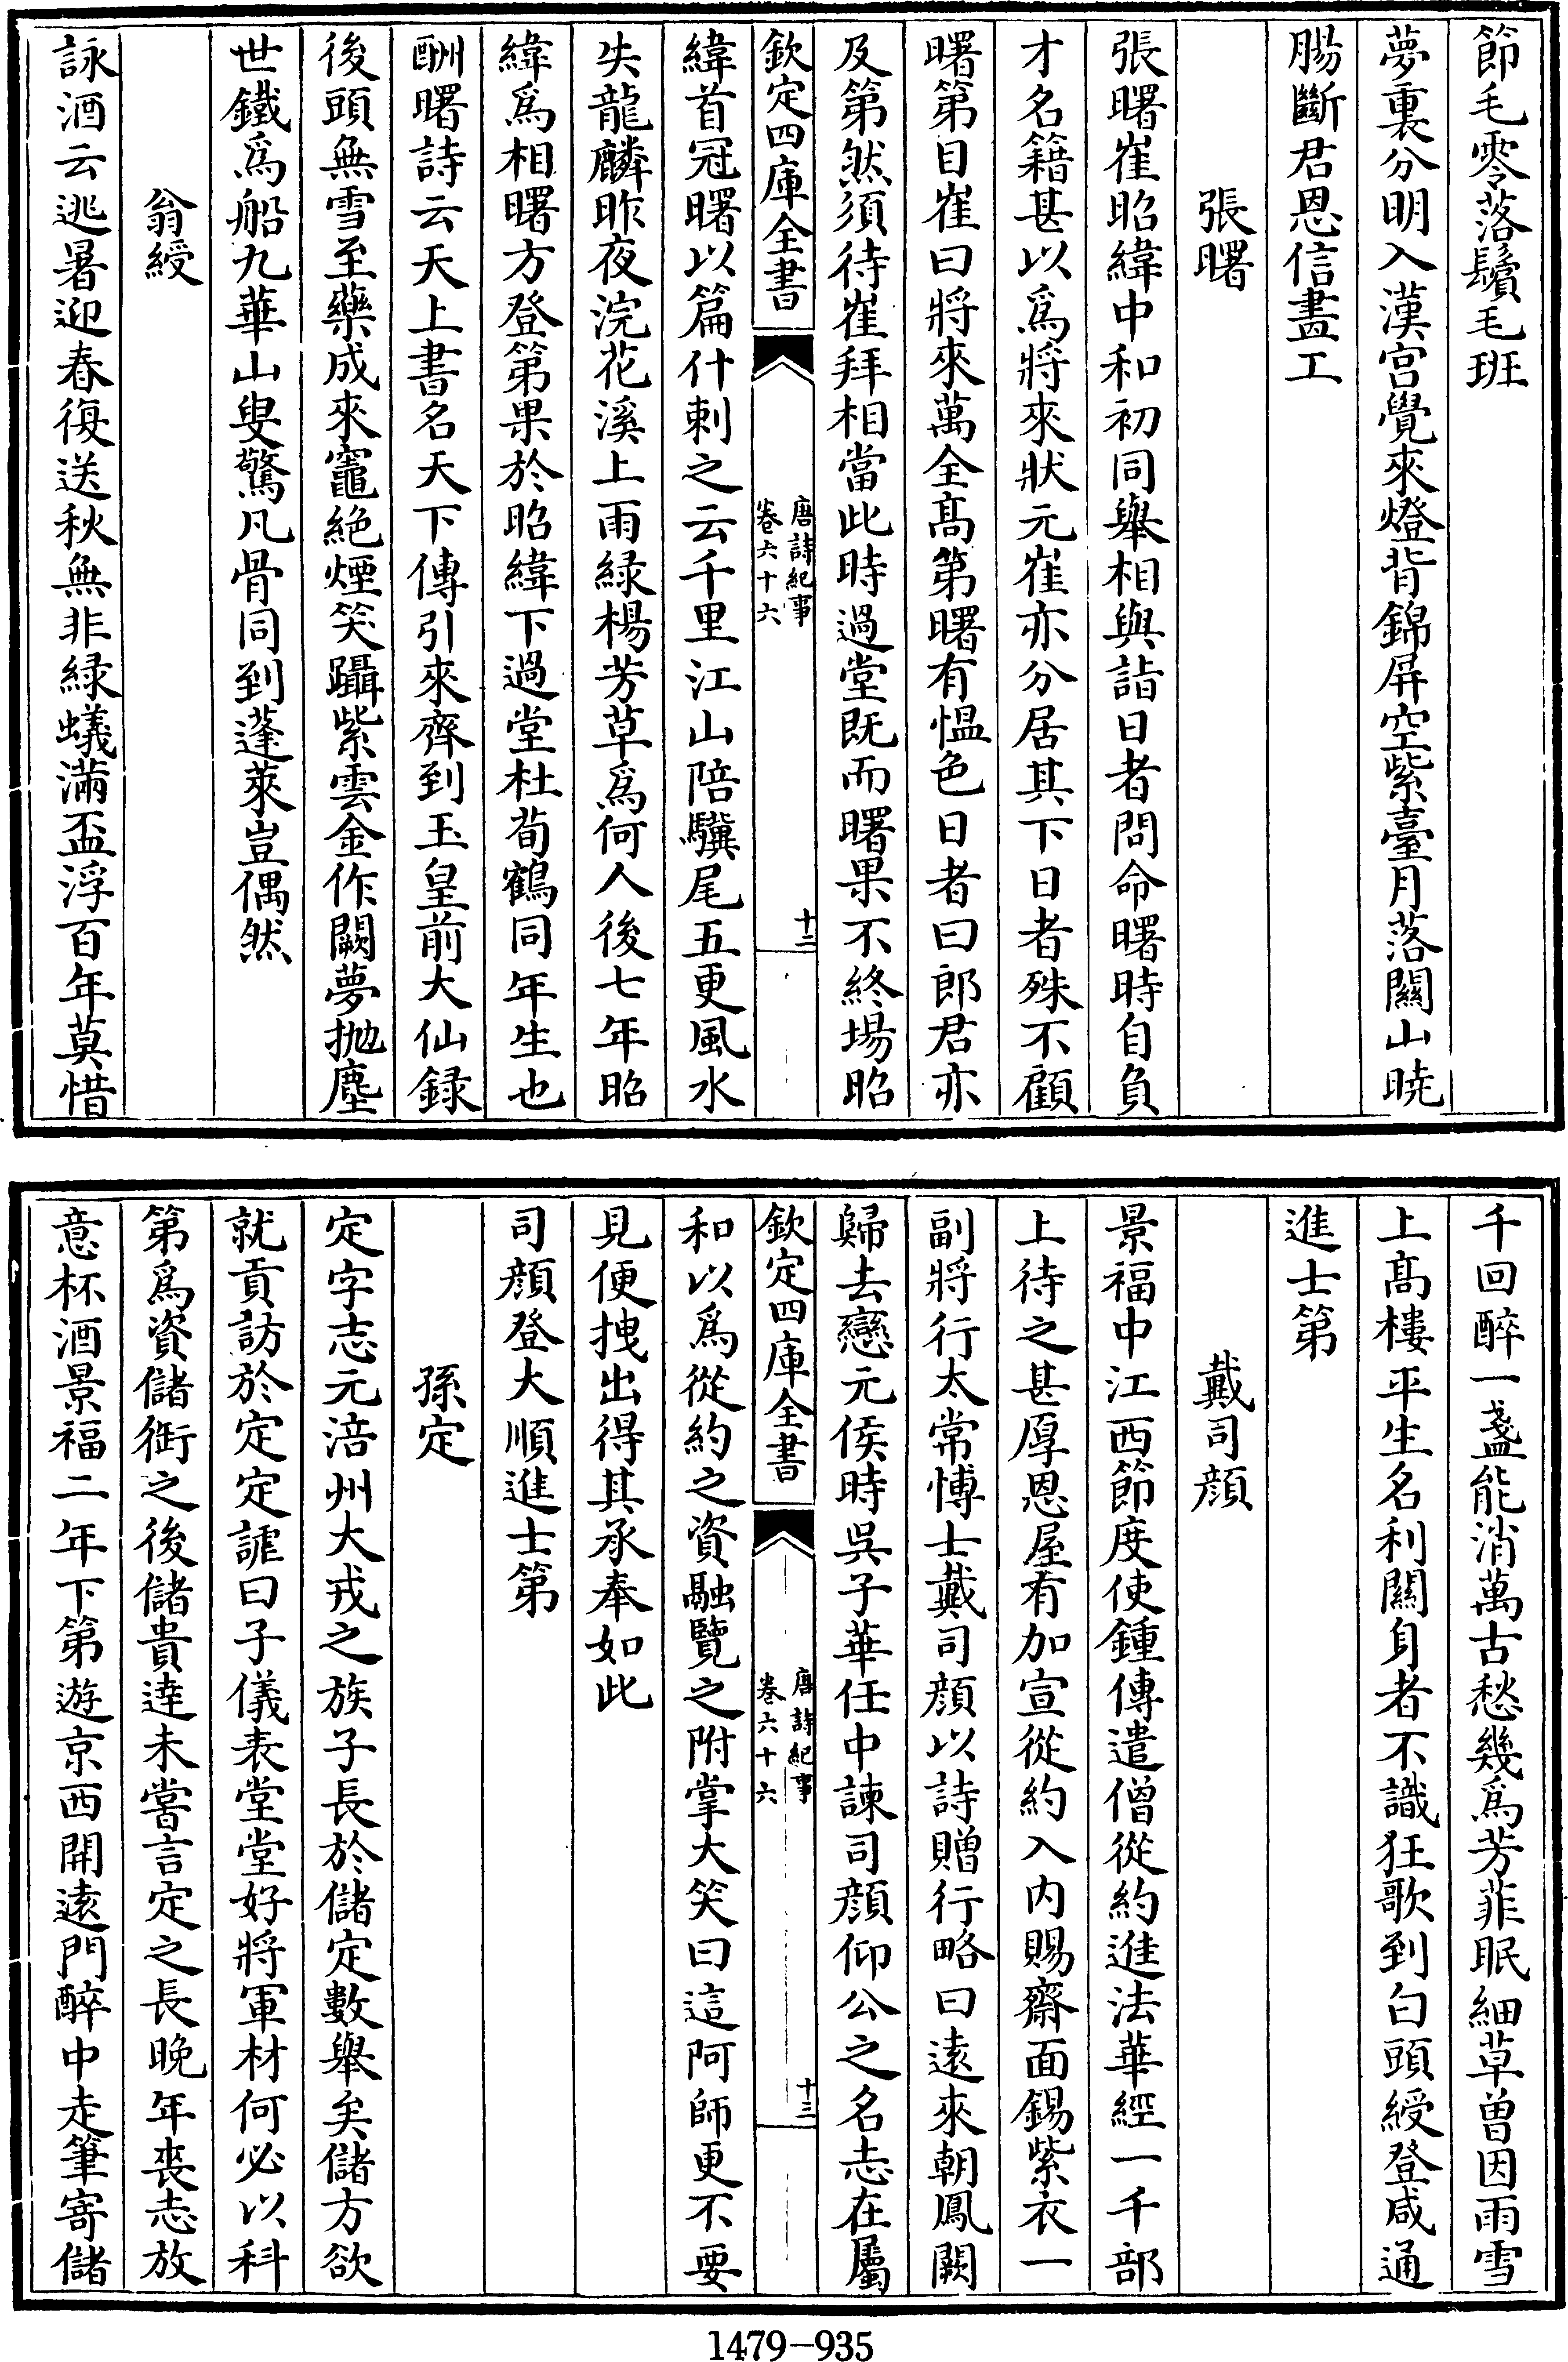 節毛零落鬢毛班
夢裏分明入漢宫覺來燈背錦屏空紫臺月落關山曉
腸斷君恩信畫工
張曙
張曙崔昭緯中和初同舉相與詣日者問命曙時自負
才名籍甚以爲將來狀元崔亦分居其下日者殊不顧
曙第目崔曰將來萬全髙第曙有愠色日者曰郎君亦
及第然須待崔拜相當此時過堂既而曙果不終場昭
欽定四庫全書
唐詩紀事
卷六十六
十二
緯首冠曙以篇什刺之云千里江山陪驥尾五更風水
失龍麟昨夜浣花溪上雨緑楊芳草爲何人後七年昭
緯爲相曙方登第果於昭緯下過堂杜荀鶴同年生也
酬曙詩云天上書名天下傳引來齊到玉皇前大仙録
後頭無雪至藥成來竈絶煙笑躡紫雲金作闕夢抛塵
世鐵爲船九華山叟驚凡骨同到蓬萊豈偶然
翁綬
詠酒云逃暑迎春復送秋無非緑蟻滿盃浮百年莫惜
千回醉一盞能消萬古愁幾爲芳菲眠細草曽因雨雪
上髙樓平生名利關身者不識狂歌到白頭綬登咸通
進士第
戴司顔
景福中江西節度使鍾傳遣僧從約進法華經一千部
上待之甚厚恩屋有加宣從約入内賜齋面錫紫衣一
副將行太常博士戴司顔以詩贈行略曰逺來朝鳳闕
歸去戀元侯時吳子華任中諫司顔仰公之名志在屬
欽定四庫全書
唐詩紀事
卷六十六
十三
和以爲從約之資融覽之附掌大笑曰這阿師更不要
見便拽出得其承奉如此
司顔登大順進士第
孫定
定字志元涪州大戎之族子長於儲定數舉矣儲方欲
就貢訪於定定謔曰子儀表堂堂好將軍材何必以科
第爲資儲銜之後儲貴逹未嘗言定之長晚年喪志放
意杯酒景福二年下第遊京西開逺門醉中走筆寄儲
1479-935